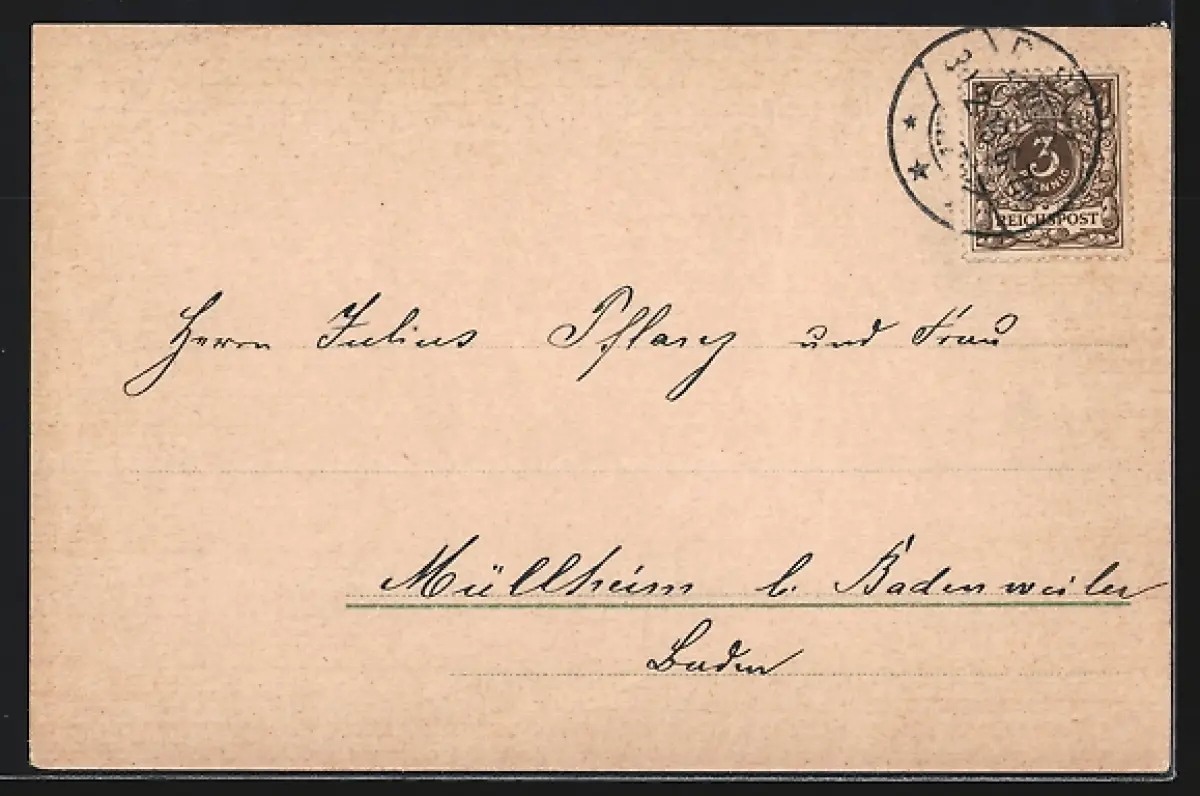 3
PFENNIG
REICHSPOST
Herrn Julius Pflarz und Frau
Müllheim b. Badenweiler
Baden